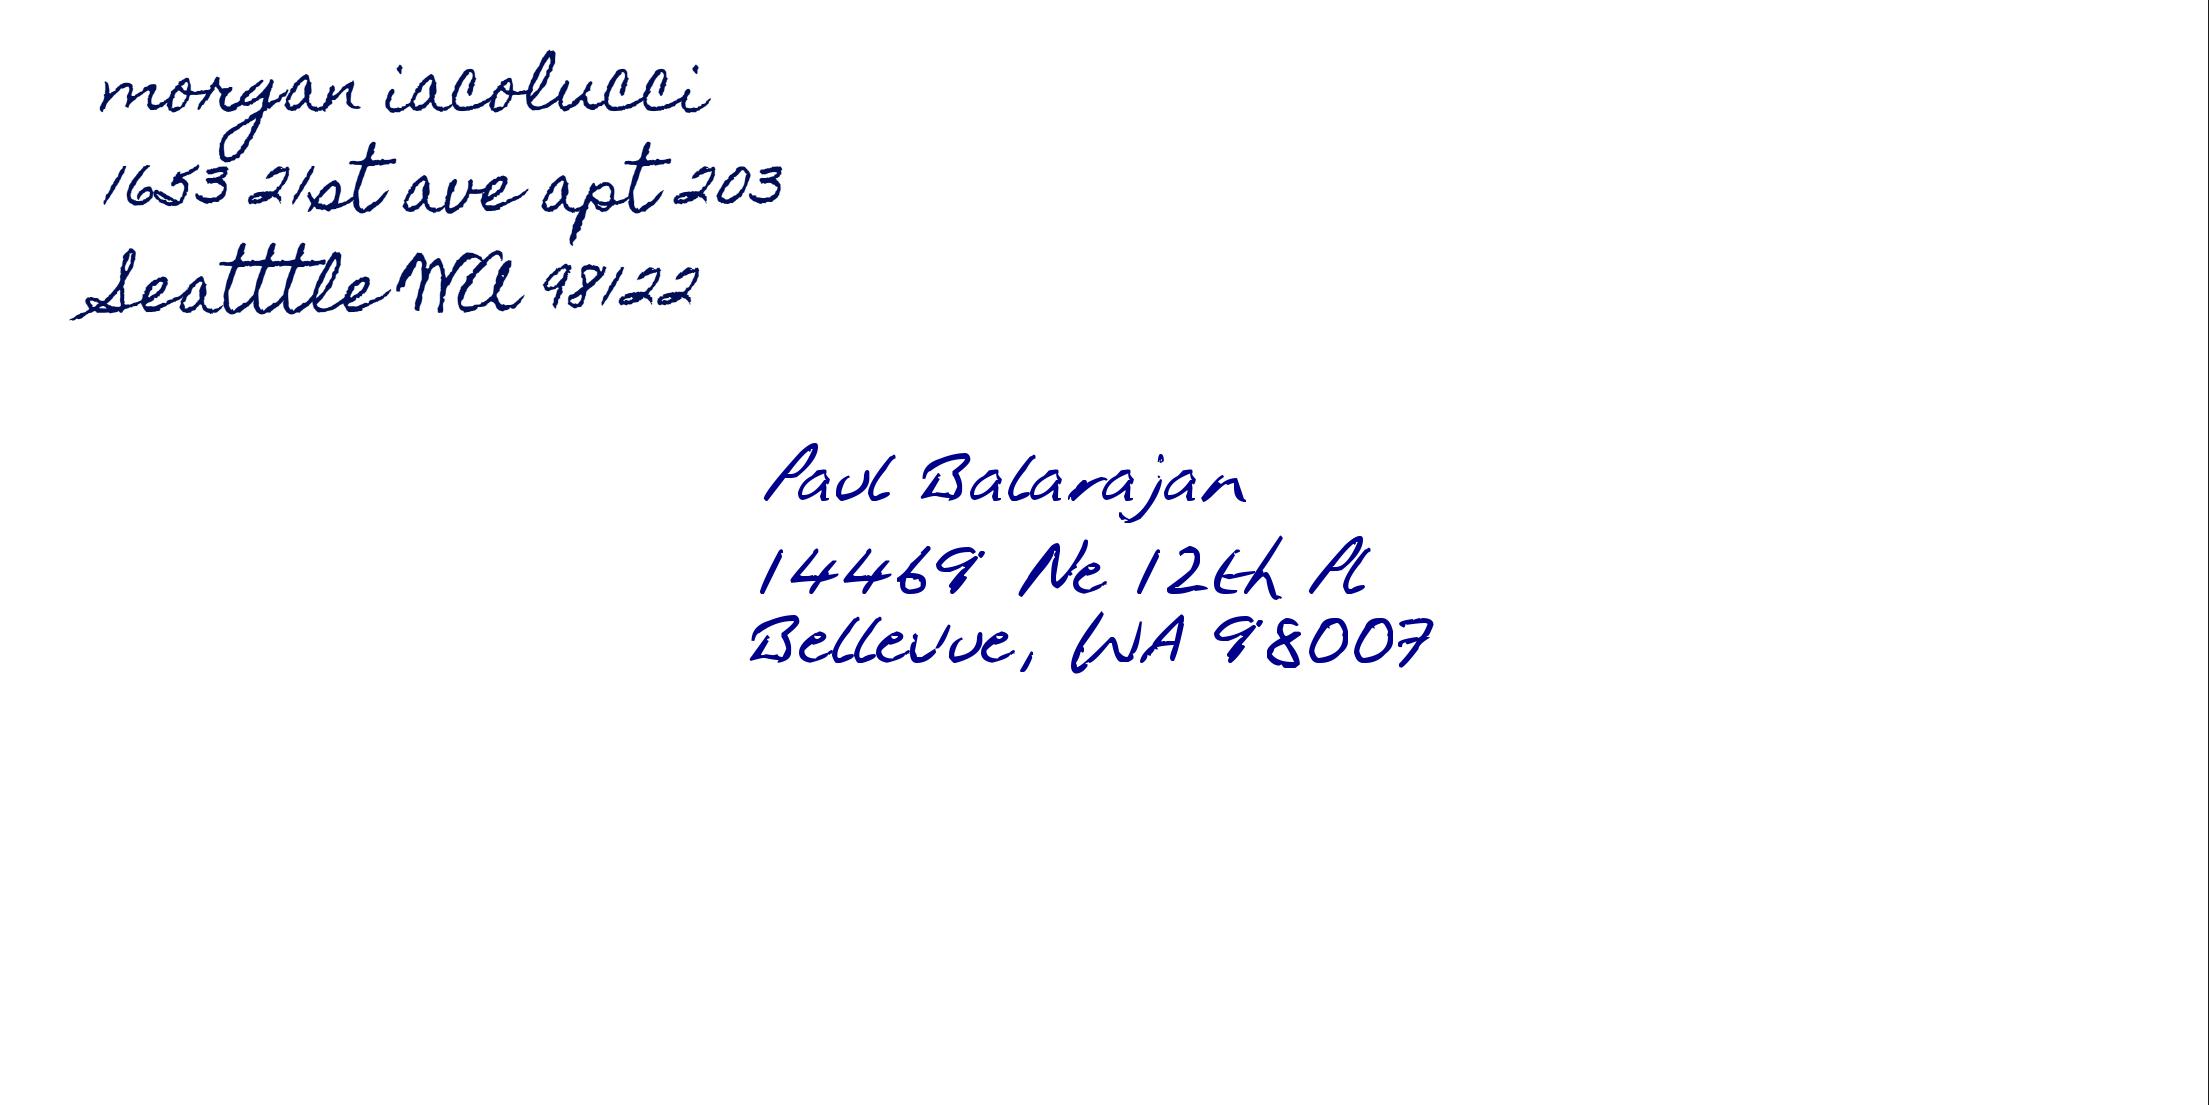 morgan iacolucci
1653 21st ave apt 203
Seatttle WA 98122
Paul Balarajan
14469 Ne 12th Pl
Bellevue, WA 98007